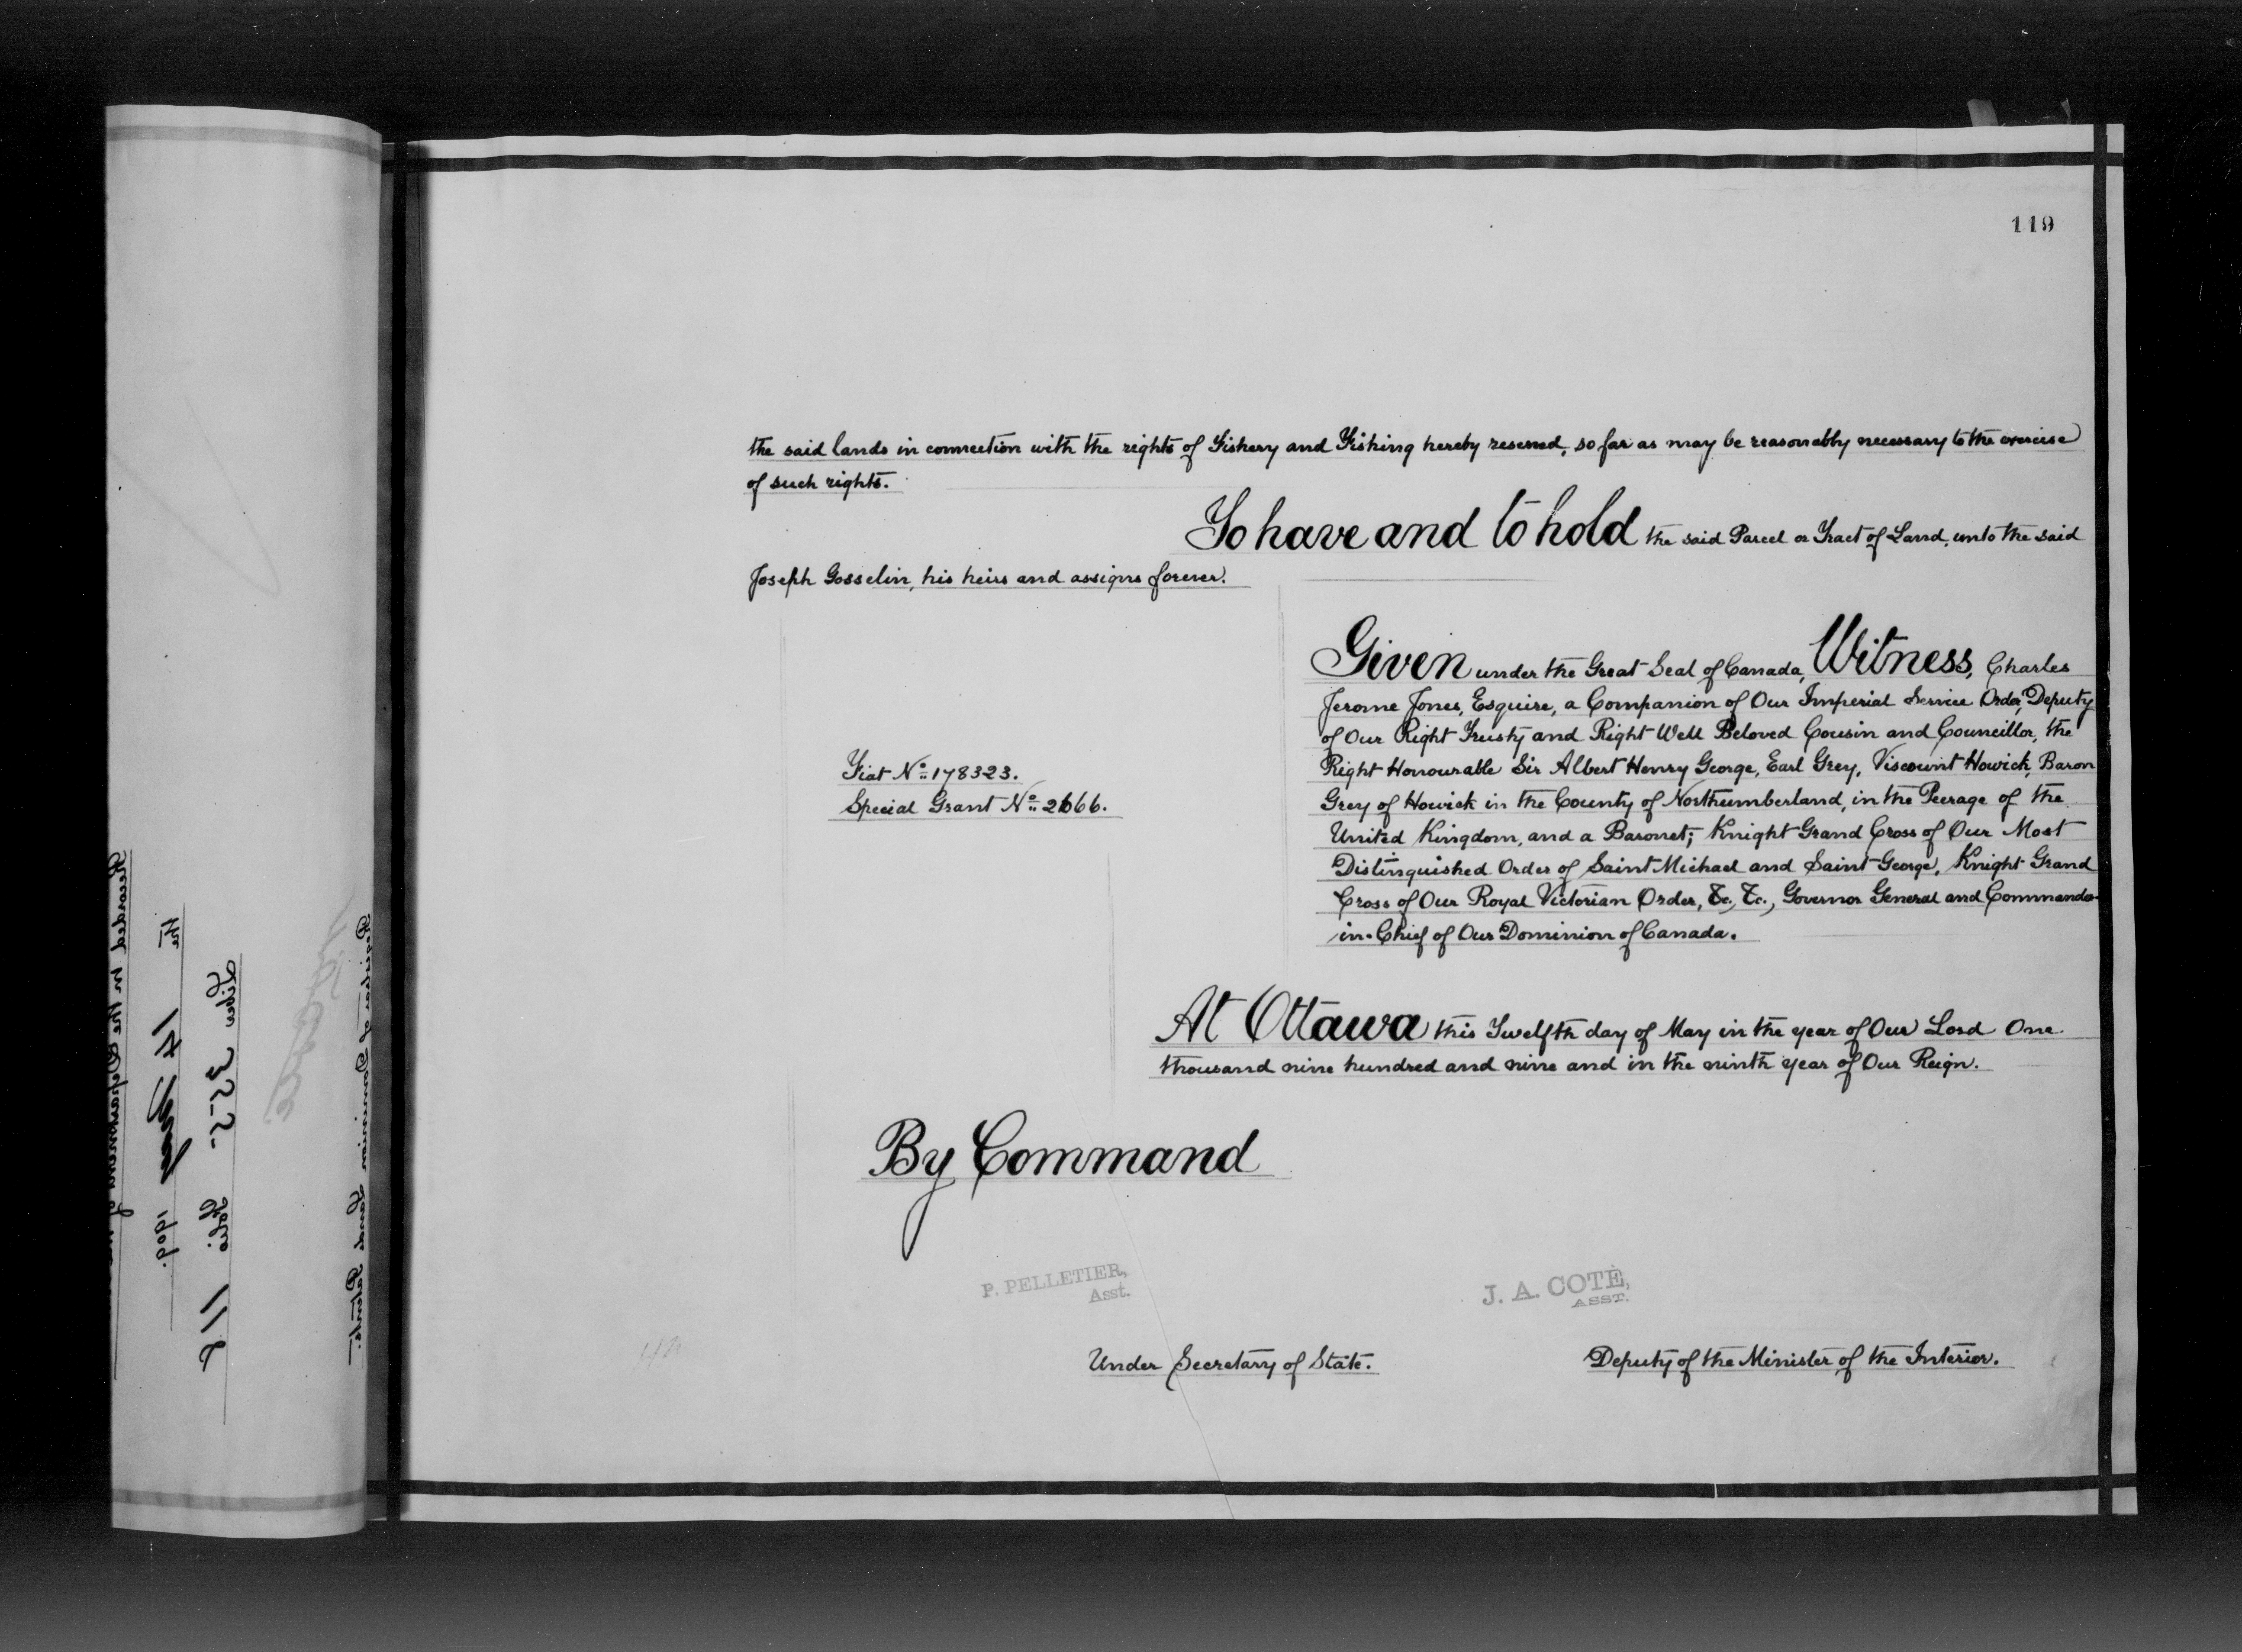 119
the said lands in connection with the rights of Fishery and Fishing hereby reserved, so far as may be reasonably necessary to the exercise
of such rights.
To have and to hold the said Parcel or Tract of Land, unto the said
Joseph Gosselin, his heirs and assigns forever.
Given under the Great Seal of Canada, Witness, Charles
Jerome Jones, Esquire, a Companion of Our Imperial Service Order, Deputy
of Our Right Trusty and Right Well Beloved Cousin and Councillor, the
Right Honourable Sir Albert Henry George, Earl Grey, Viscount Howick, Baron
Grey of Howick in the County of Northumberland, in the Peerage of the
United Kingdom, and a Baronet; Knight Grand Cross of Our Most
Distinguished Order of Saint Michael and Saint George, Knight Grand
Cross of Our Royal Victorian Order, &c., &c., Governor General and Commander-
in-Chief of Our Dominion of Canada.
Fiat No 178323.
Special Grant No 2666.
At Ottawa this Twelfth day of May in the year of Our Lord One
thousand nine hundred and nine and in the ninth year of Our Reign.
By Command
P. PELLETIER,
Asst.
J. A. COTÈ,
ASST.
Under Secretary of State.
Deputy of the Minister of the Interior.
Recorded in the Department of
the 14 May 1909.
Liber 255 Folio 118
Registrar of Dominion Lands Patents.